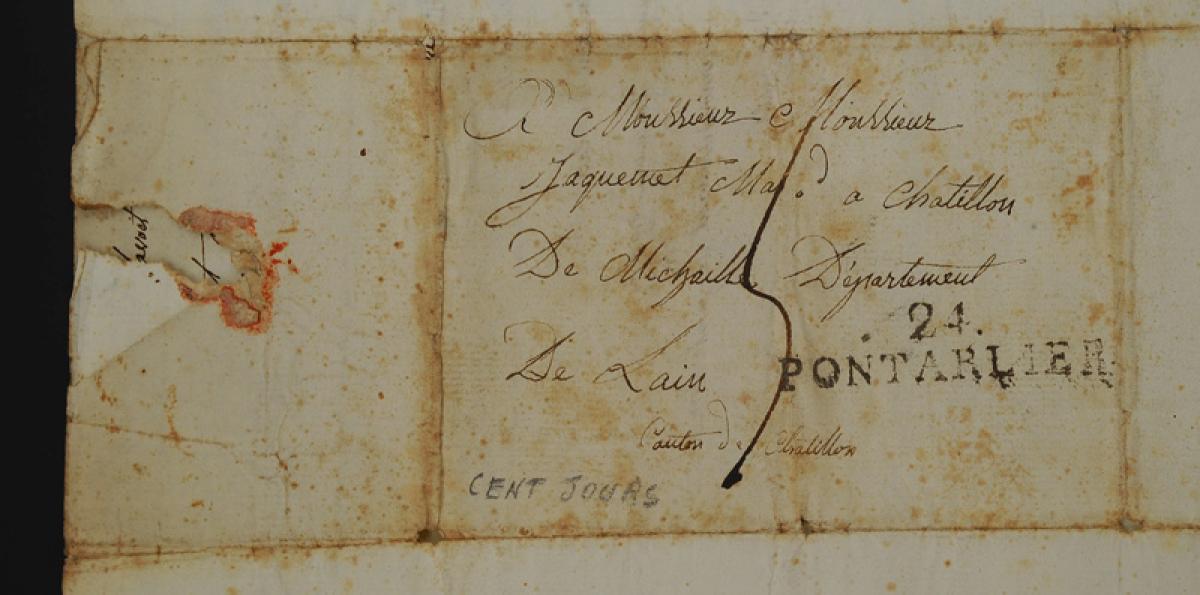 A Moussieur Moussieur
Jaquemet Ma.d a Chatillon
De Michaille Département
De Lain
24.
PONTARLIER
Canton de Chatillon
CENT JOURS